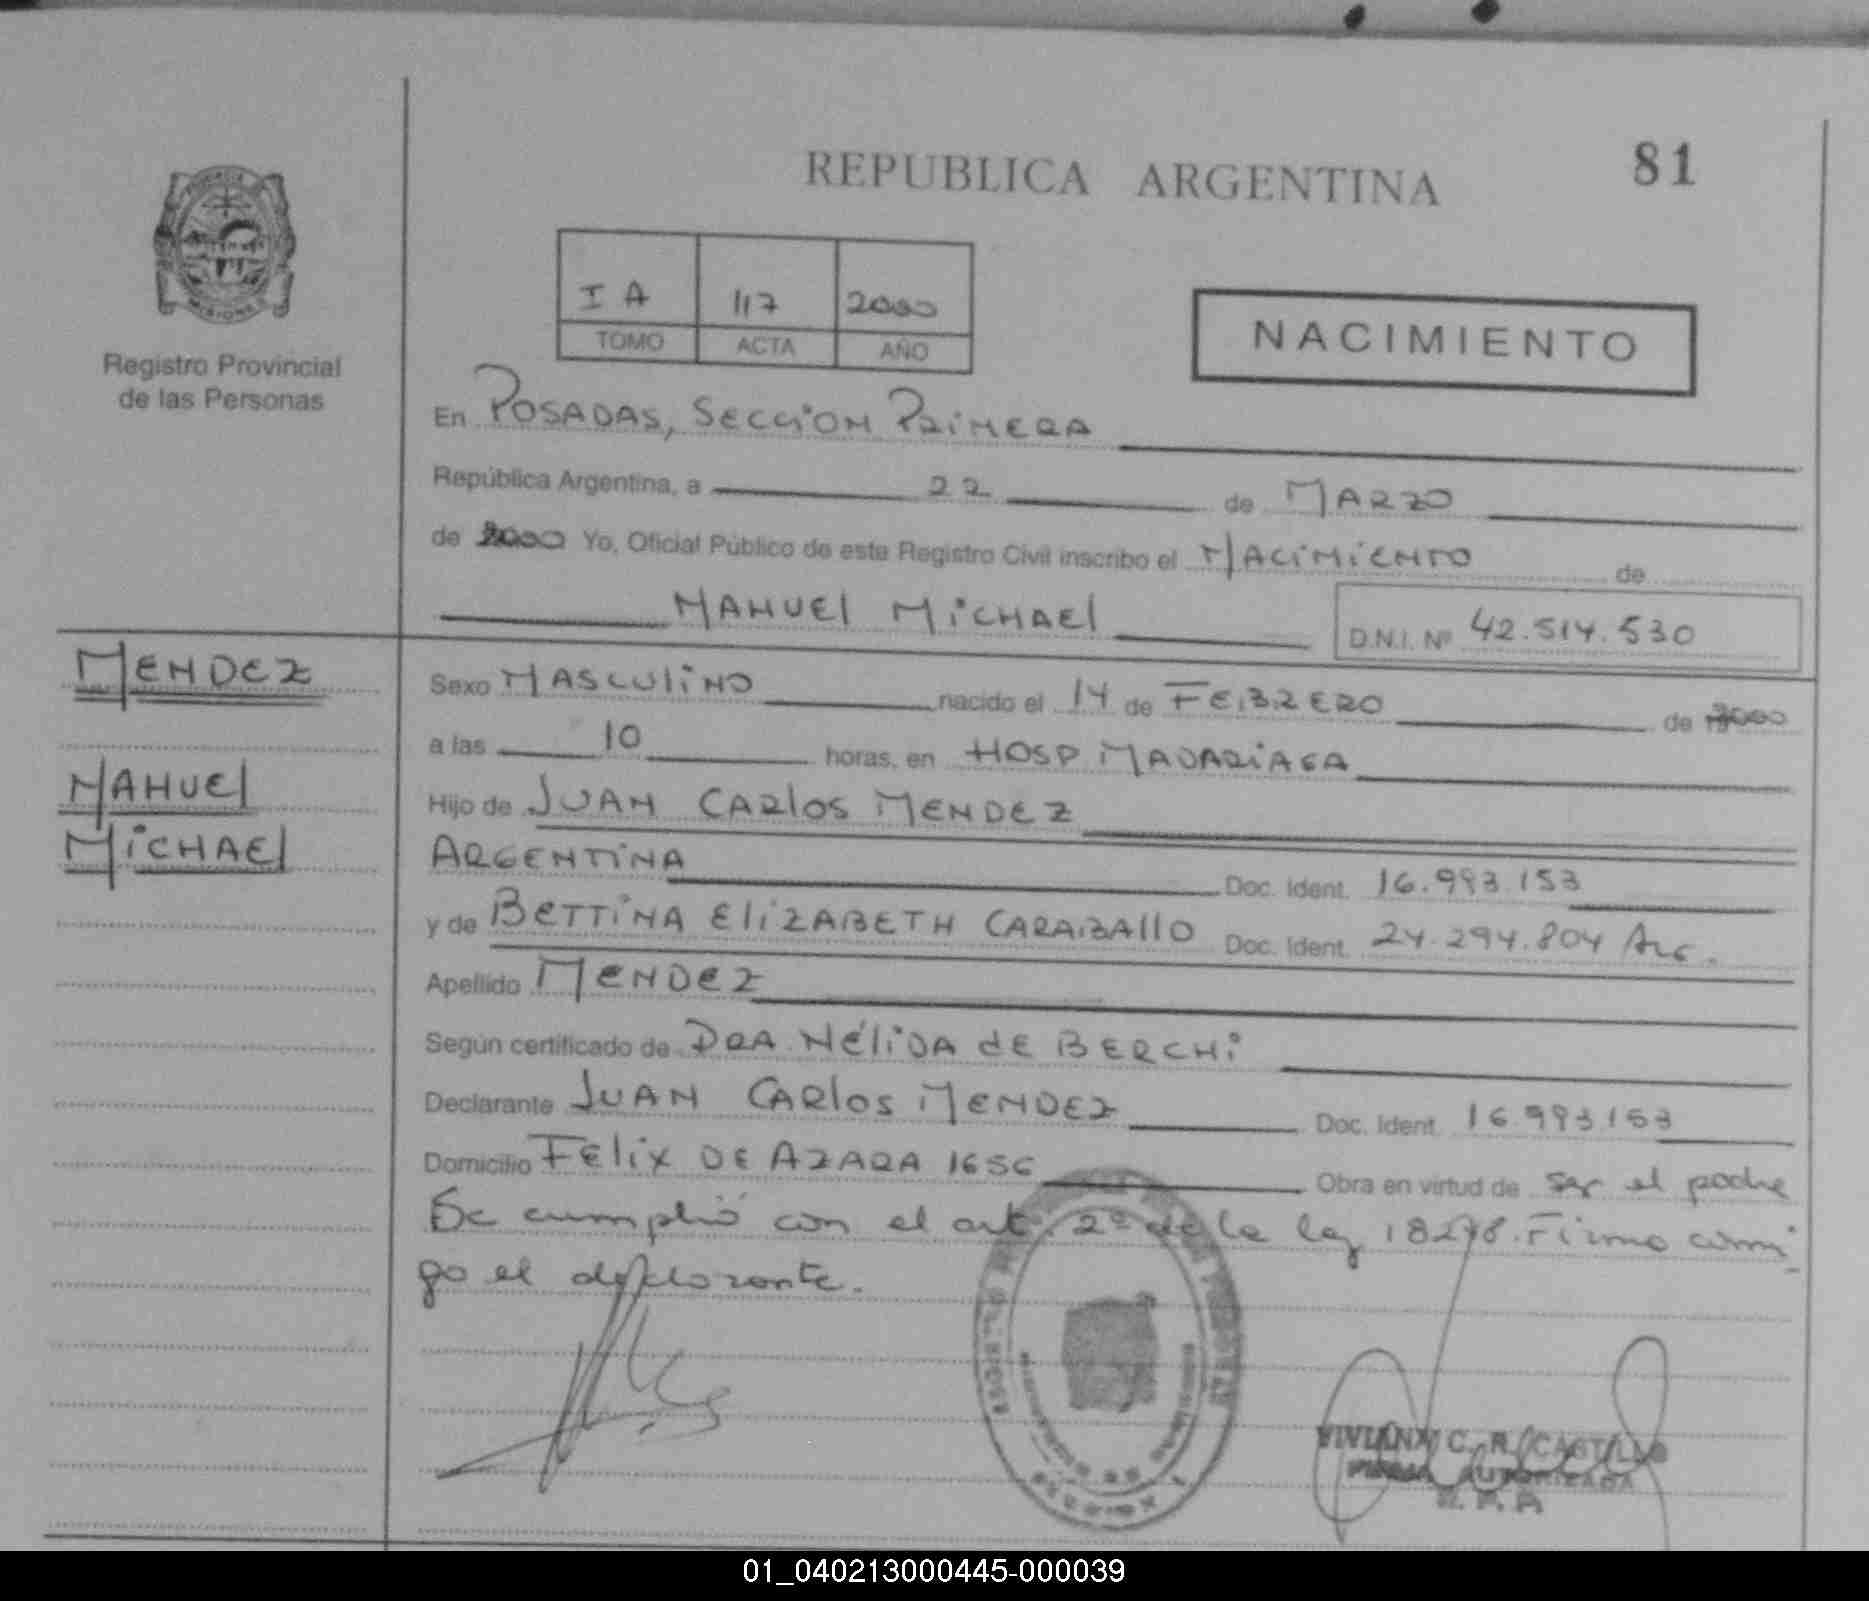 REPUBLICA ARGENTINA
81
I A 117 2000
TOMO ACTA AÑO
NACIMIENTO
MISIONES
Registro Provincial
de las Personas
En POSADAS, SECCION PRIMERA
República Argentina, a 22 de MARZO
de 2000 Yo, Oficial Público de este Registro Civil inscribo el NACIMIENTO de
MANUEL MICHAEL
D.N.I. Nº 42.514.530
MENDEZ
MANUEL
MICHAEL
Sexo MASCULINO nacido el 14 de FEBRERO de 2000
a las 10 horas, en HOSP MADARIAGA
Hijo de JUAN CARLOS MENDEZ
ARGENTINA Doc. Ident. 16.993.153
y de BETTINA ELIZABETH CARABALLO Doc. Ident. 24.294.804 ARG.
Apellido MENDEZ
Según certificado de DRA NÉLIDA DE BERCHI
Declarante JUAN CARLOS MENDEZ Doc. Ident. 16.993.153
Domicilio FELIX DE AZARA 1656 Obra en virtud de ser el padre
Se cumplió con el art. 2º de la ley 18248. Firma conmi
go el declarante.
C. R. CASTILLO
FIRMA AUTORIZADA
R. P. P.
01_040213000445-000039